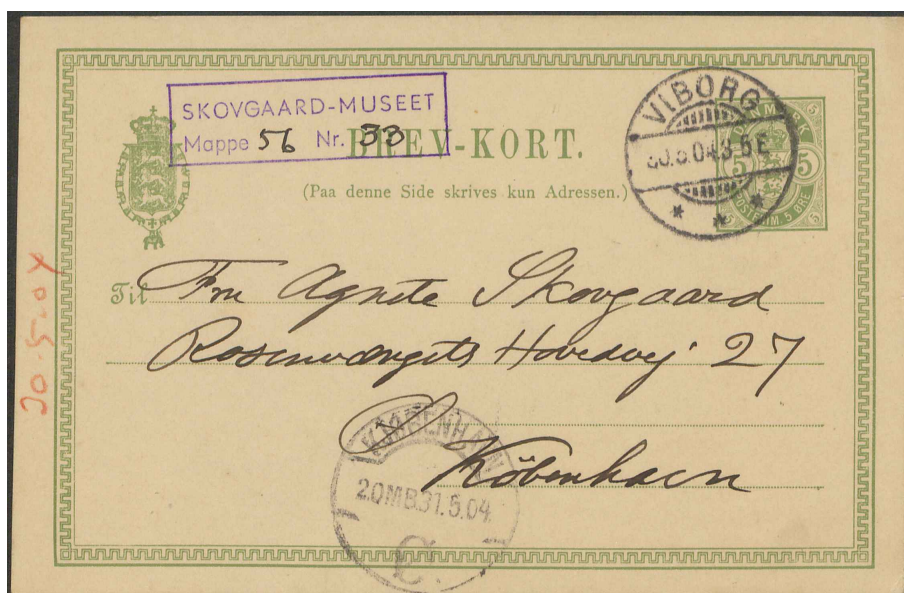 SKOVGAARD-MUSEET
Mappe 56 Nr. 33
BREV-KORT.
(Paa denne Side skrives kun Adressen.)
VIBORG
30.5.04 3-5 E
DANMARK
5 5 5 5
POSTFRIM. 5 ØRE
Til Fru Agnete Skovgaard
Rosenvængets Hovedvej 27
Ø
København
KJØBENHAVN
2.OMB.31.5.04.
Ø
30.5.04